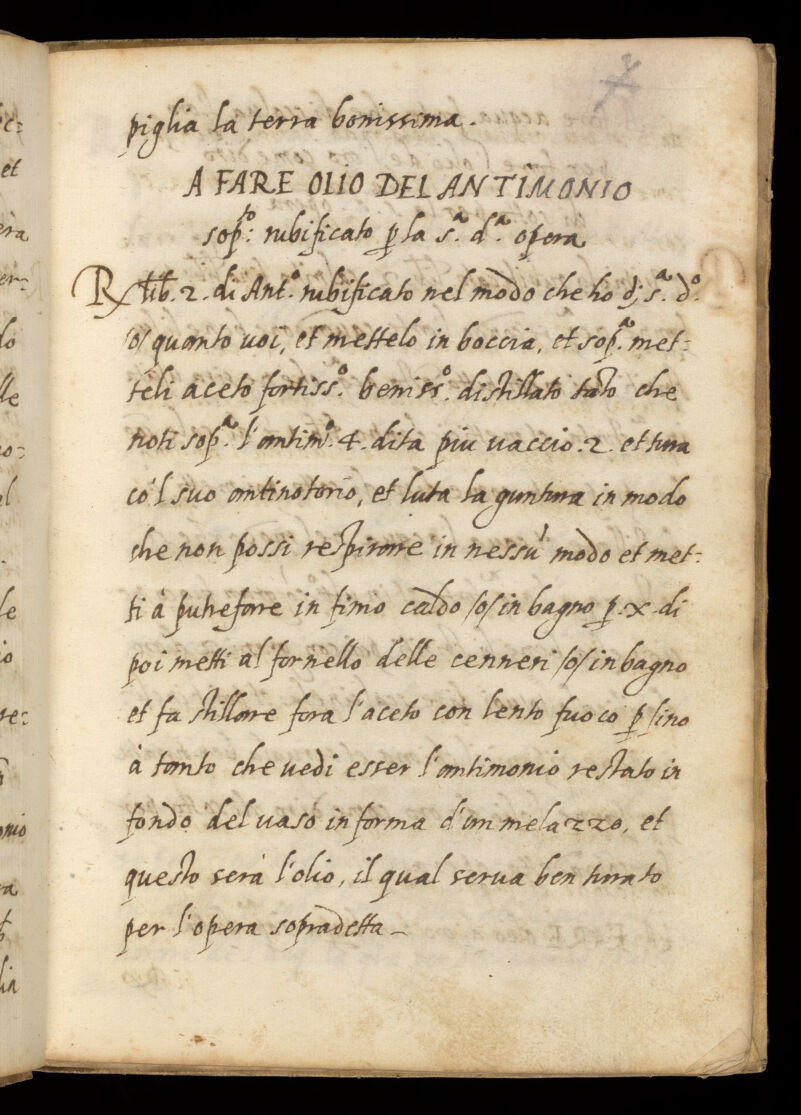 piglia la terra bonissima.
A FARE OLIO DEL ANTIMONIO
sop.to: rubificato p la s.a d.a opera
℞ lib. 2. di Ant.o rubificato nel modo che ho dj s.a d.o
/o/ quanto voi, et mettelo in boccia, et sop.a met:
teli aceto fortiss.o beniss.o distillato tãto che
noti sop.a l'antim.o 4. dita piu vaccio .2. et tura
co'l suo antinotorio, et luta la guntura in modo
che non possi respirare in nessu' modo et met:
ti à putrefare in fimo caldo /o/ in bagno p .x. di
poi metti al fornello delle cenneri /o/ in bagno
et fa stillare fora l'aceto con lento fuoco p sino
à tanto che vedi esser l'antimonio restato in
fondo del vaso in forma d'un melazzo, et
questo serà l'olio, il qual serva ben turato
per l'opera sopradetta _